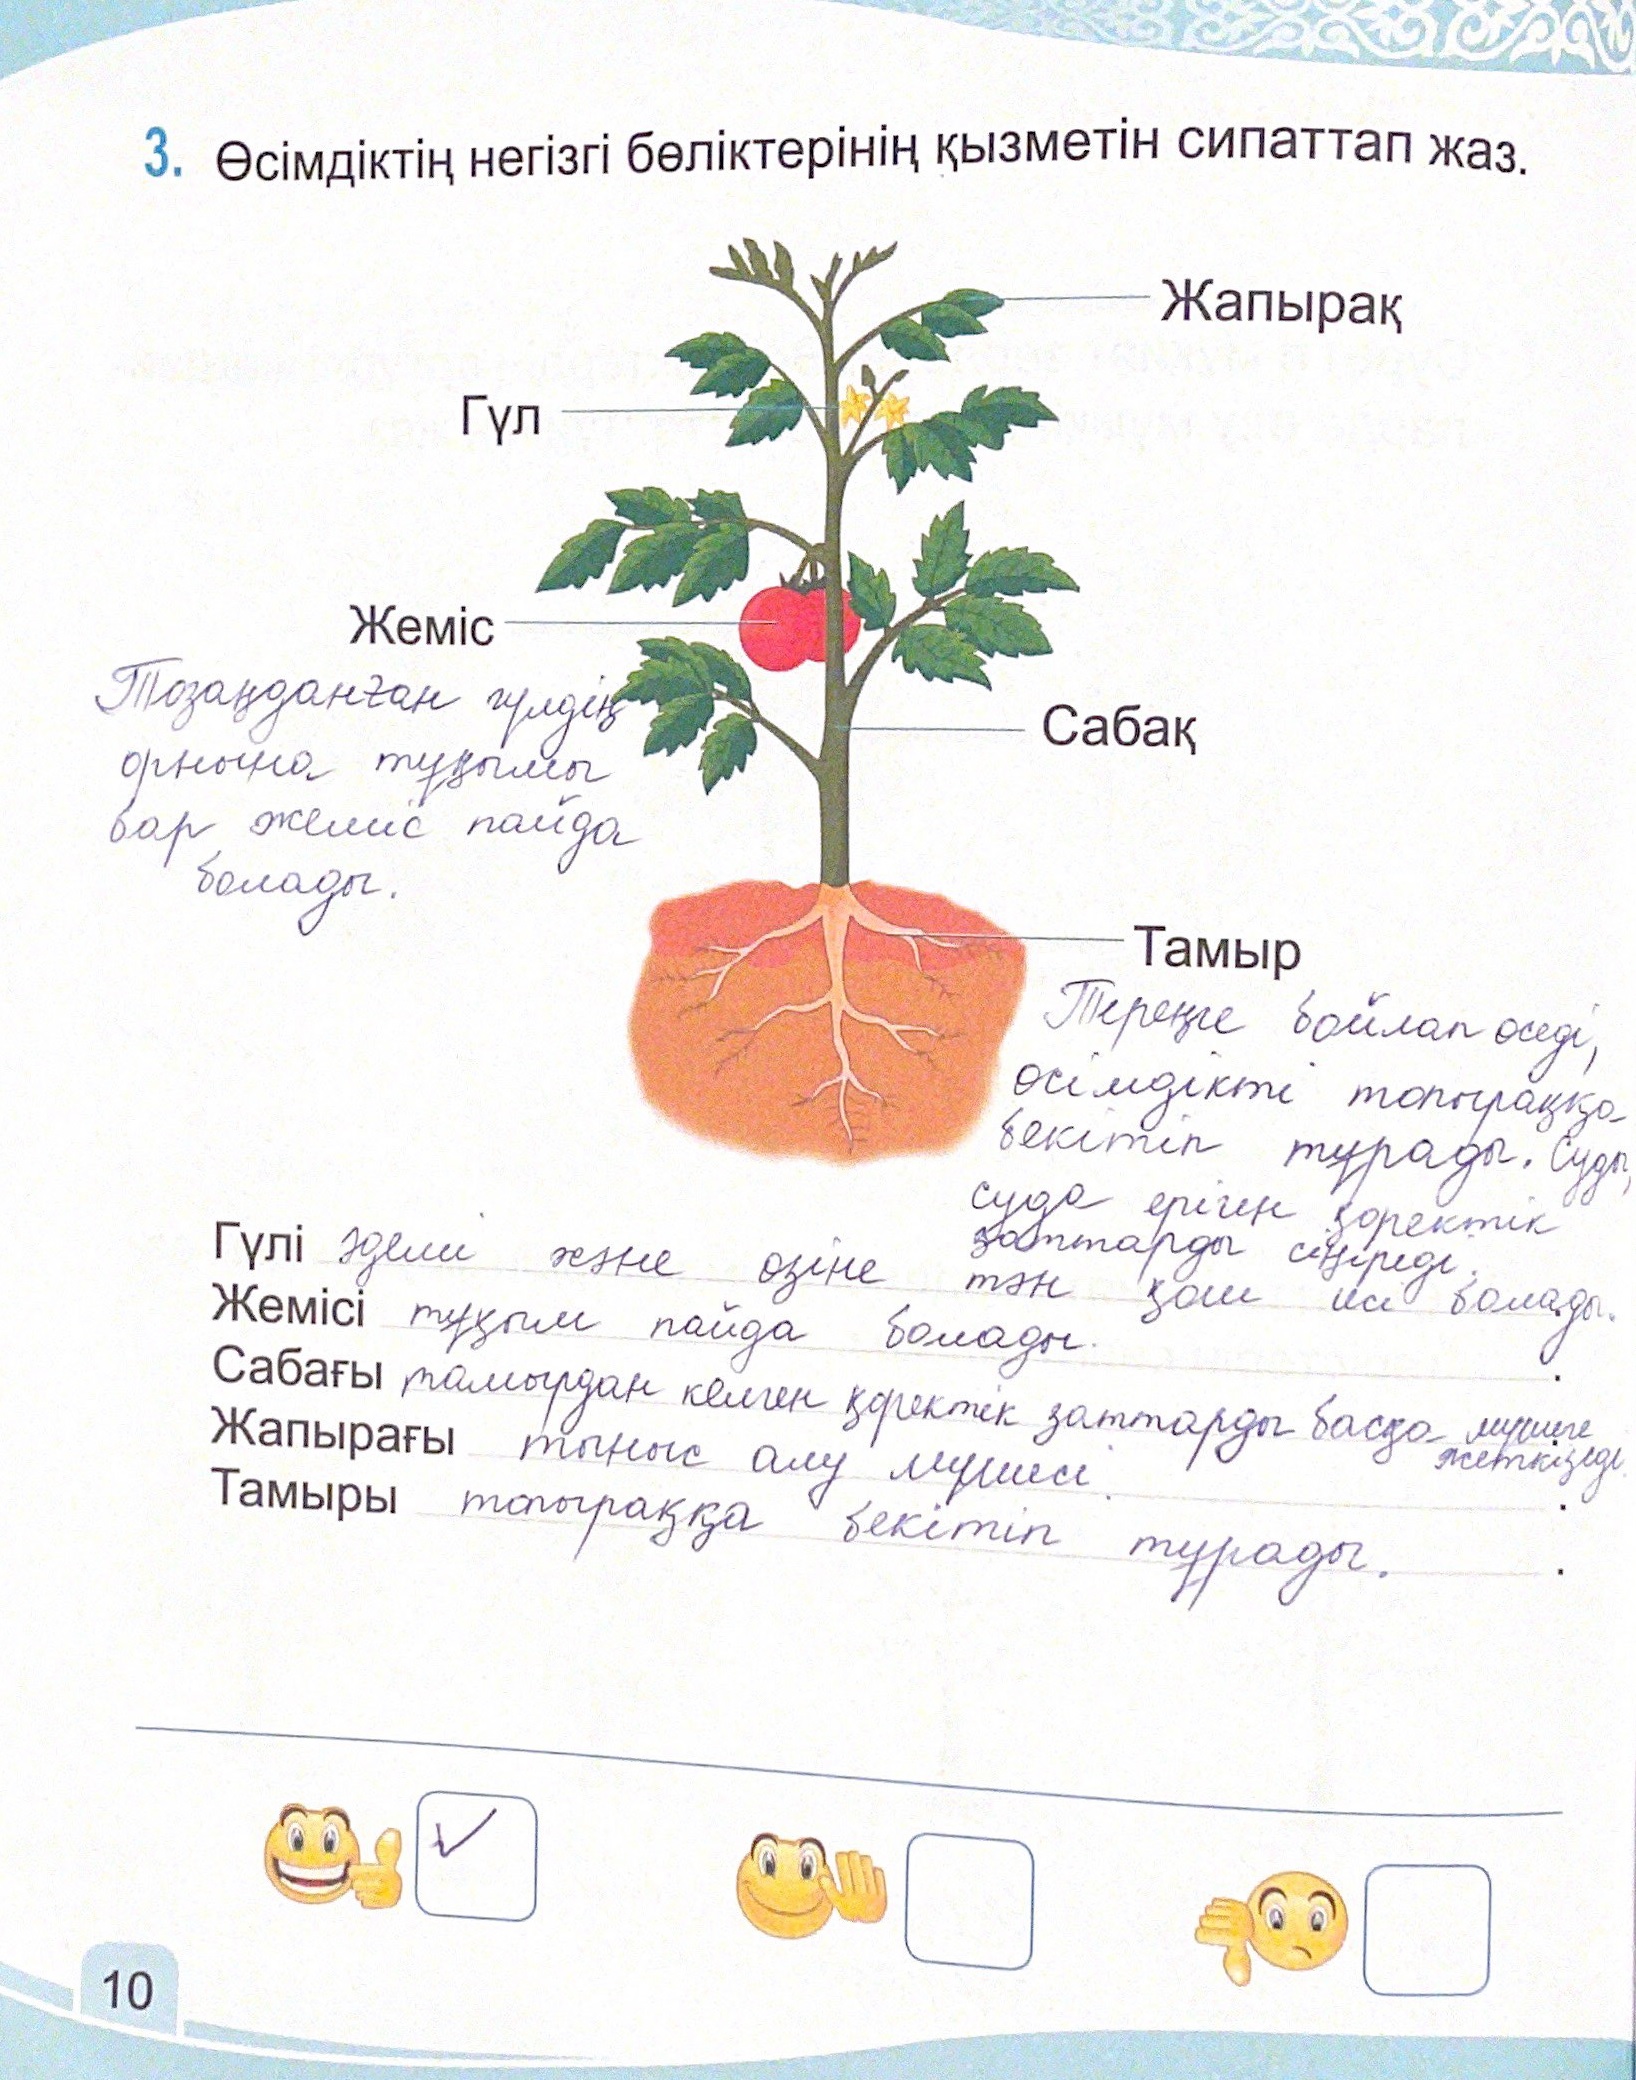 3. Өсімдіктің негізгі бөліктерінің қызметін сипаттап жаз.
Жапырақ
Гүл
Жеміс
Тозаңданған гүлдің
орнына тұқымы
бар жеміс пайда
болады.
Сабақ
Тамыр
Тереңге бойлап өседі,
өсімдікті топыраққа
бекітіп тұрады. Суды,
суда еріген қоректік
заттарды сіңіреді.
Гүлі әдемі және өзіне тән қош исі болады.
Жемісі тұқым пайда болады.
Сабағы тамырдан келген қоректік заттарды басқа мүшеге
жеткізеді.
Жапырағы тыныс алу мүшесі.
Тамыры топыраққа бекітіп тұрады.
10